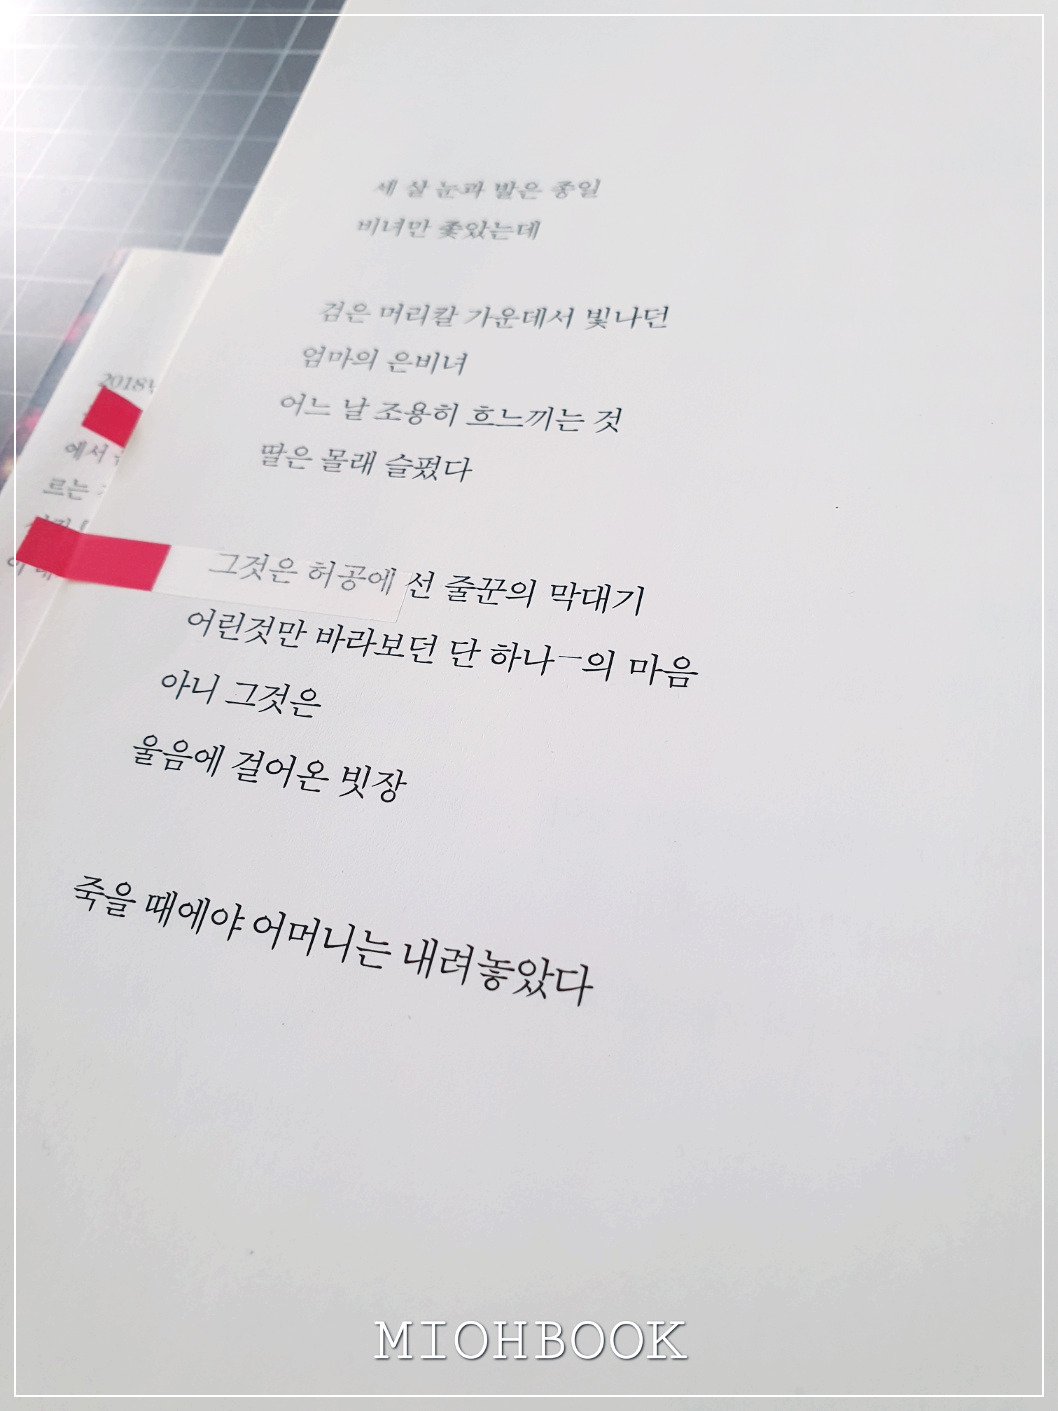 세 살 눈과 발은 종일
비녀만 좇았는데
검은 머리칼 가운데서 빛나던
엄마의 은비녀
어느 날 조용히 흐느끼는 것
딸은 몰래 슬펐다
그것은 허공에 선 줄꾼의 막대기
어린것만 바라보던 단 하나一의 마음
아니 그것은
울음에 걸어온 빗장
죽을 때에야 어머니는 내려놓았다
2018년
에서
르는
MIOHBOOK